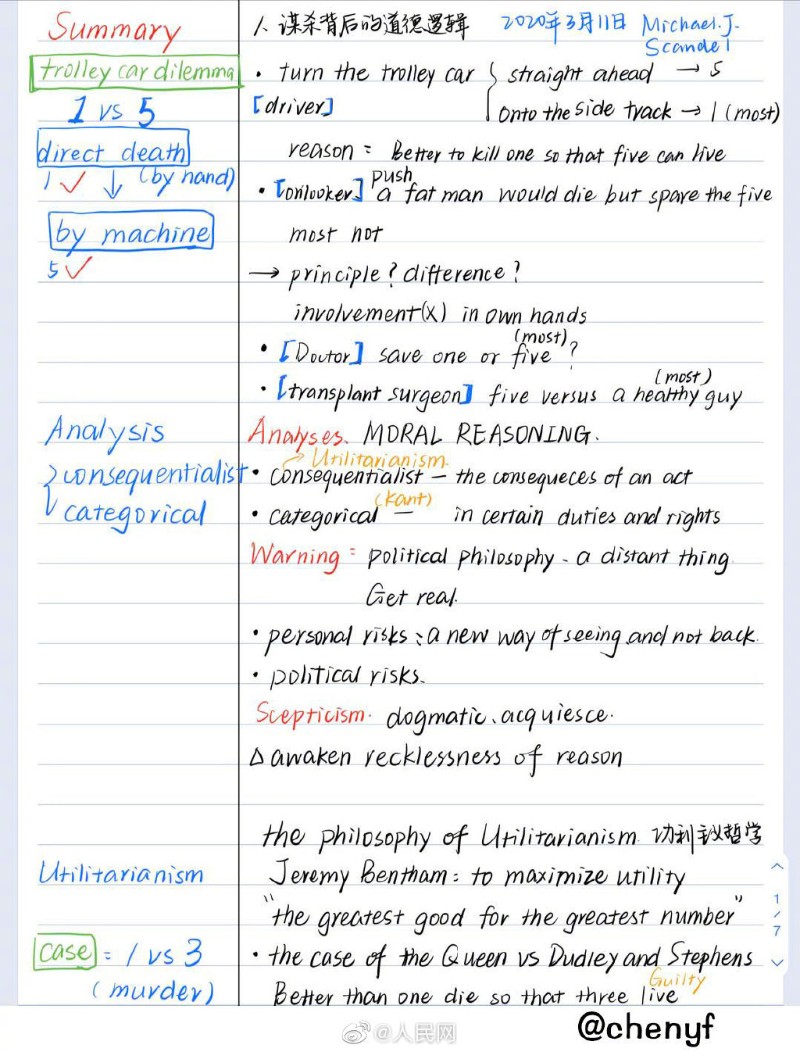 Summary
1. 谋杀背后的道德逻辑 2020年3月11日 Michael.J.
Scandel
trolley car dilemma
• turn the trolley car { straight ahead → 5
1 vs 5
[driver] onto the side track → 1 (most)
direct death
reason = Better to kill one so that five can live
1 ✓ ↓ (by hand)
push
• [onlooker] a fat man would die but spare the five
by machine
most not
5 ✓
→ principle? difference?
involvement(x) in own hands
(most)
• [Doctor] save one or five?
(most)
• [transplant surgeon] five versus a healthy guy
Analysis
Analyses. MORAL REASONING.
→ Utilitarianism
consequentialist
• consequentialist — the consequeces of an act
(Kant)
categorical
• categorical — in certain duties and rights
Warning = political philosophy - a distant thing
Get real.
• personal risks: a new way of seeing and not back.
• political risks.
Scepticism. dogmatic、acquiesce.
Δ awaken recklessness of reason
the philosophy of Utilitarianism. 功利主义哲学
Utilitarianism
Jeremy Bentham: to maximize utility
"the greatest good for the greatest number"
1/7
case = 1 vs 3
• the case of the Queen vs Dudley and Stephens
Guilty
(murder)
Better than one die so that three live
@人民网
@chenyf